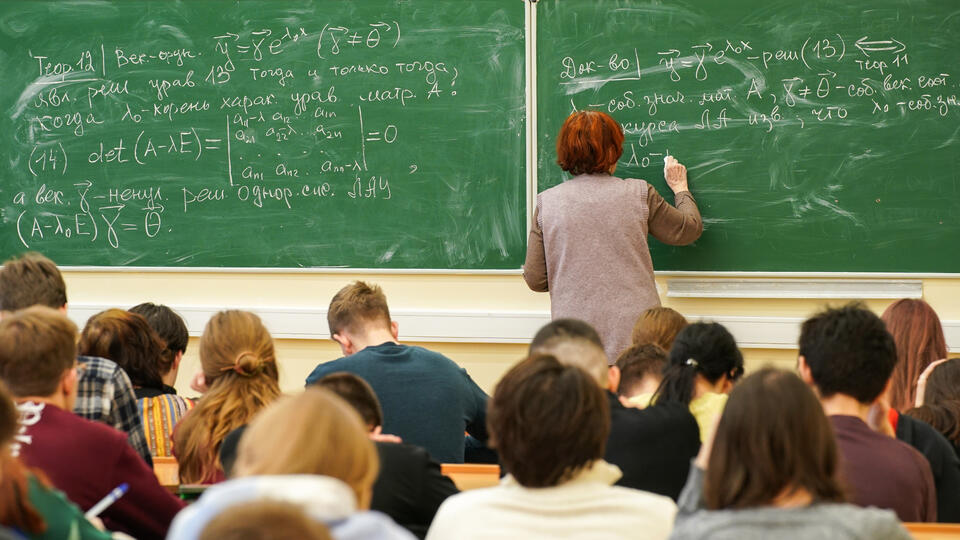 Теор.12 | Век-ория. y⃗=γ⃗e^λ₀x (γ⃗≠Θ⃗)
явл. реш урав 13 тогда и только тогда,
когда λ₀-корень харак. урав. матр. A:
(14) det(A-λE)= | a₁₁-λ a₁₂ … a₁ₙ
a₂₁ a₂₂-λ … a₂ₙ
. . . . . . .
aₙ₁ aₙ₂ … aₙₙ-λ | =0 ,
а век. γ⃗-ненул. реш. однор. сис. ЛАУ
(A-λ₀E)γ⃗=Θ⃗.
Док-во | y⃗=γ⃗e^λ₀x-реш(13) ⟺
теор 11
λ₀-соб. знач. мат A, γ⃗≠Θ⃗-соб. век соот.
курса ЛА изв., что λ₀-соб. зн
λ₀-